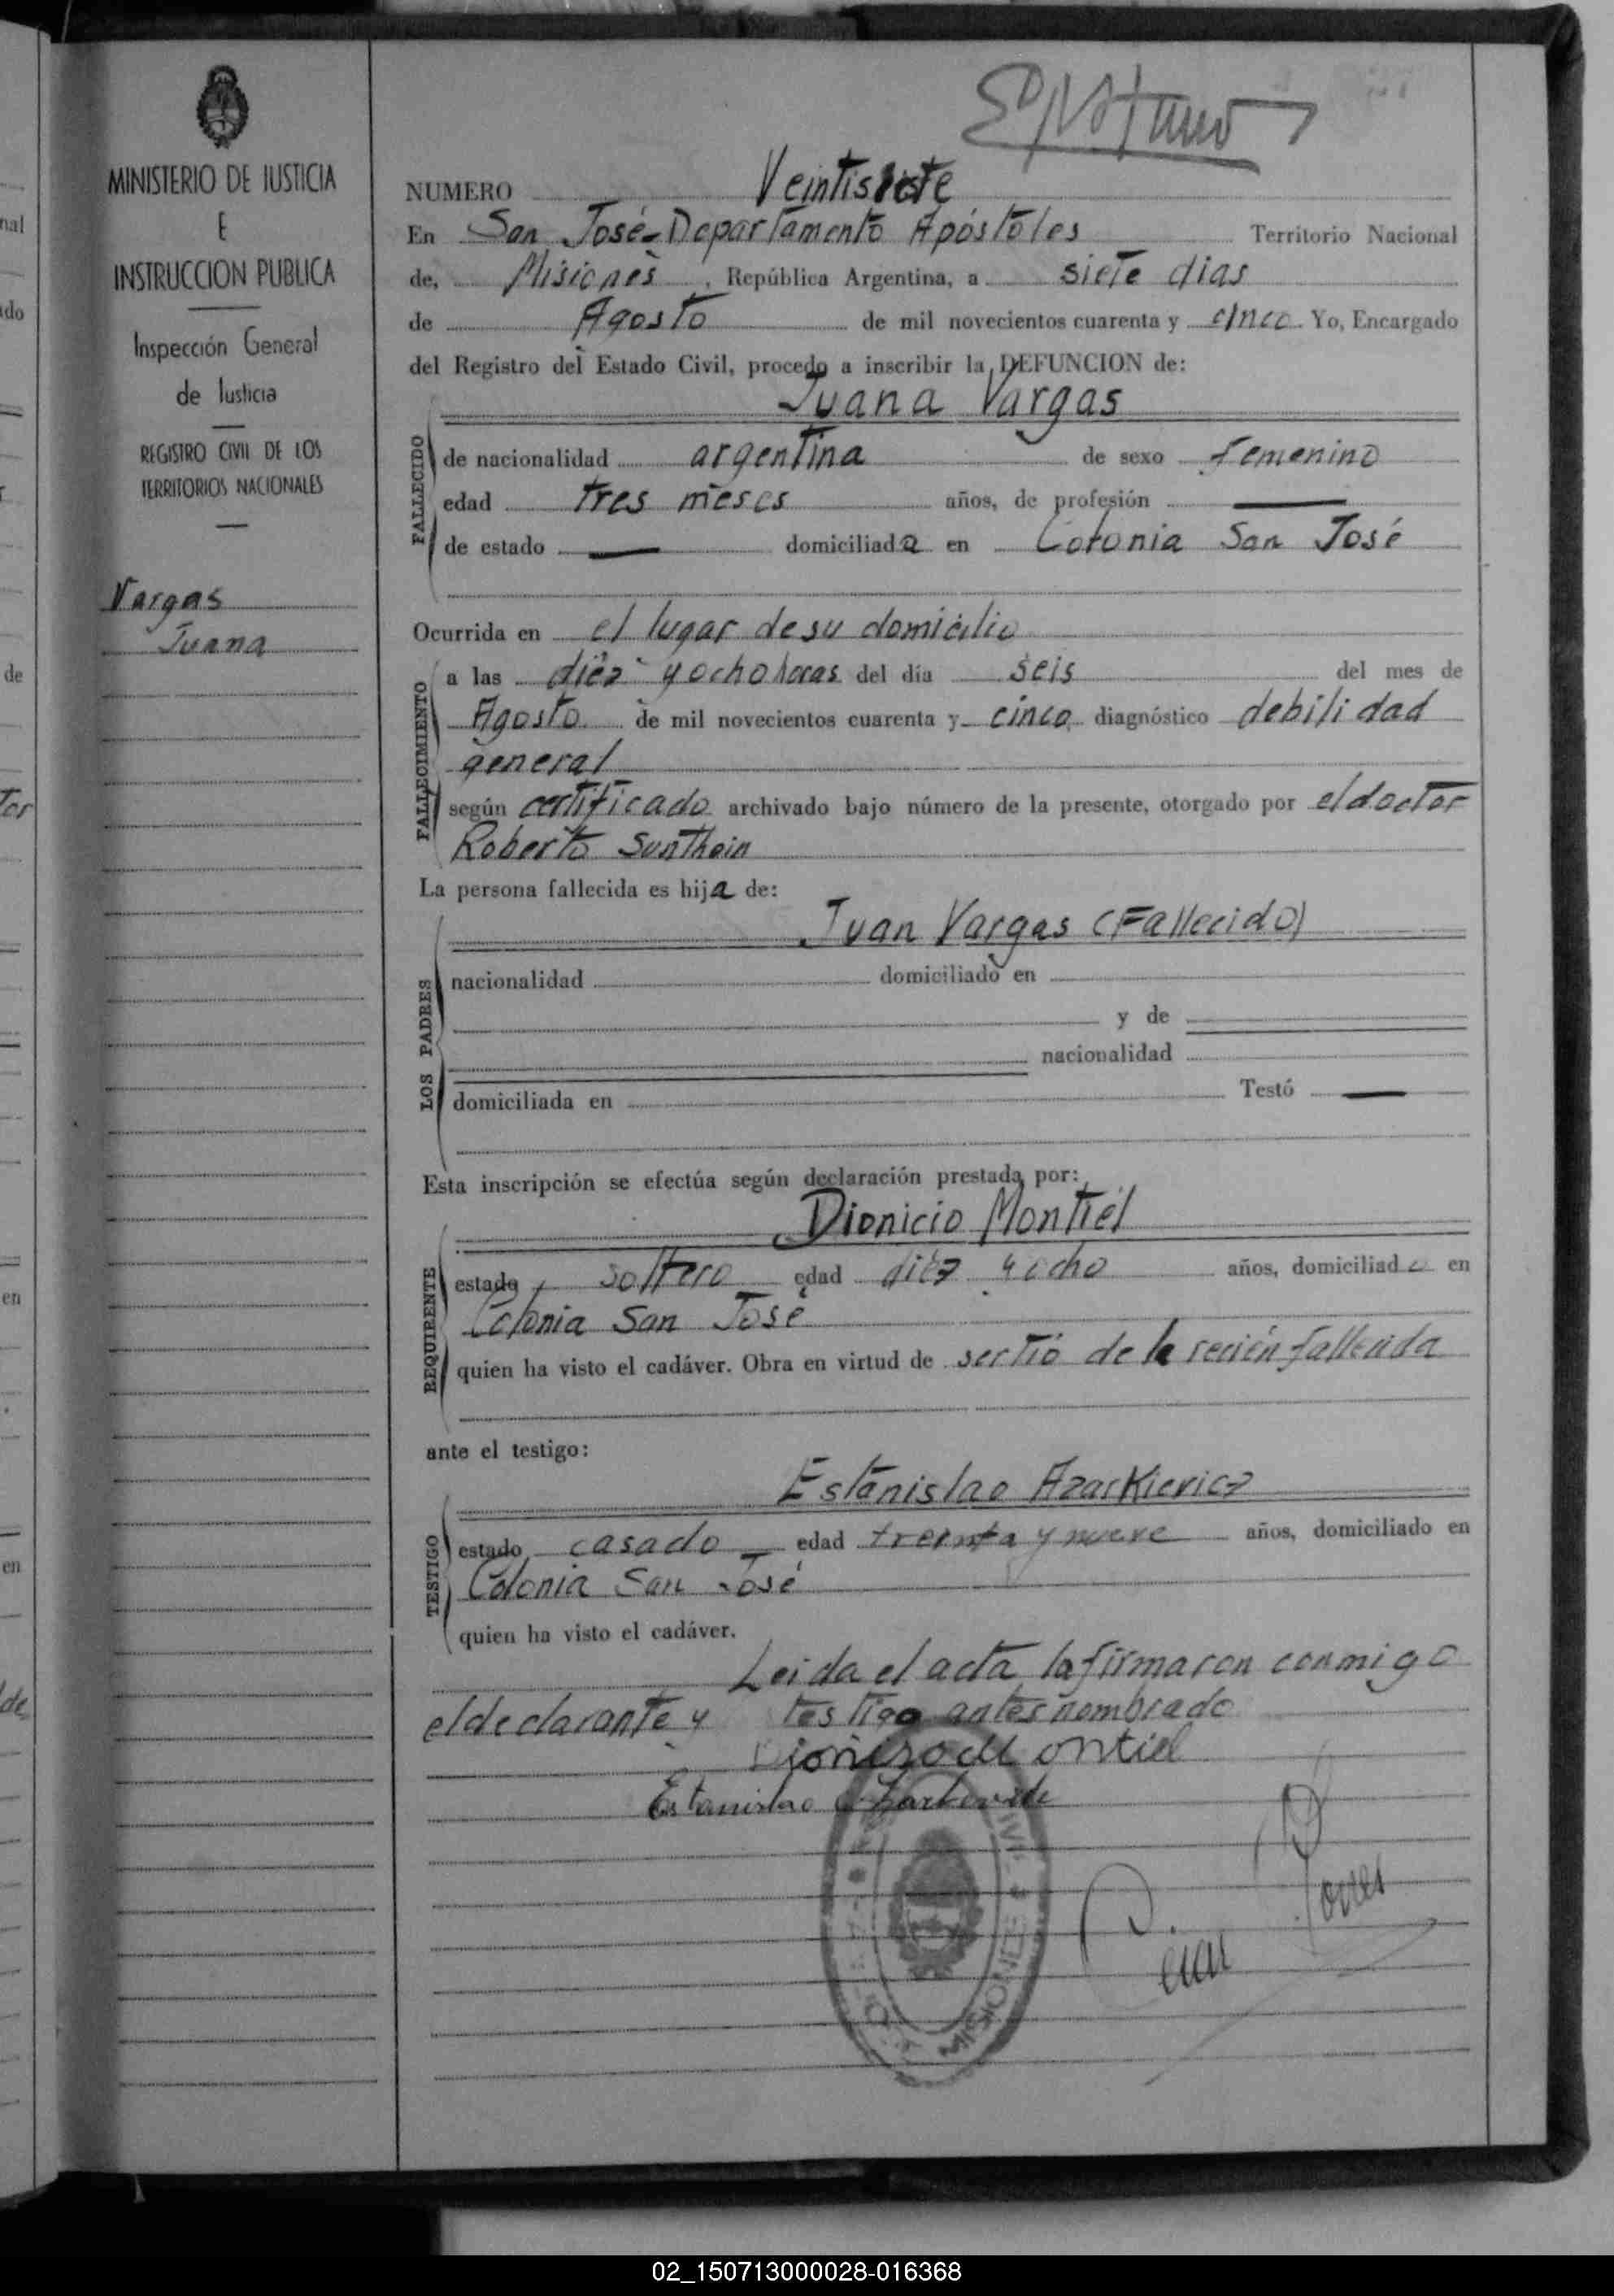 MINISTERIO DE JUSTICIA
E
INSTRUCCION PUBLICA
Inspección General
de Justicia
REGISTRO CIVIL DE LOS
TERRITORIOS NACIONALES
Vargas
Juana
NUMERO Veintisiete
En San José-Departamento Apóstoles Territorio Nacional
de, Misiones, República Argentina, a siete dias
de Agosto de mil novecientos cuarenta y cinco Yo, Encargado
del Registro del Estado Civil, procedo a inscribir la DEFUNCION de:
Juana Vargas
FALLECIDO
de nacionalidad argentina de sexo femenino
edad tres meses años, de profesión —
de estado — domiciliada en Colonia San José
Ocurrida en el lugar de su domicilio
FALLECIMIENTO
a las diez y ocho horas del día seis del mes de
Agosto de mil novecientos cuarenta y cinco, diagnóstico debilidad
general
según certificado archivado bajo número de la presente, otorgado por el doctor
Roberto Sunthein
La persona fallecida es hija de:
Juan Vargas (Fallecido)
LOS PADRES
nacionalidad domiciliado en
y de
nacionalidad
domiciliada en Testó —
Esta inscripción se efectúa según declaración prestada por:
Dionicio Montiel
REQUIRENTE
estado soltero edad diez y ocho años, domiciliado en
Colonia San José
quien ha visto el cadáver. Obra en virtud de ser tió de la recién fallecida
ante el testigo:
Estanislao Azarkievicz
TESTIGO
estado casado — edad treinta y nueve años, domiciliado en
Colonia San José
quien ha visto el cadáver.
Leida el acta la firmaron conmigo
el declarante y testigo antes nombrado
Estanislao
MISIONES
02_150713000028-016368